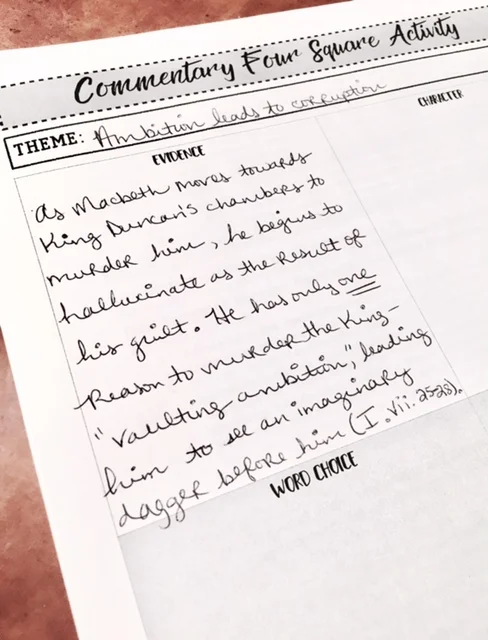 Commentary Four Square Activity
THEME: Ambition leads to corruption
EVIDENCE
CHARACTER
As Macbeth moves towards
King Duncan's chambers to
murder him, he begins to
hallucinate as the result of
his guilt. He has only one
reason to murder the King-
"vaulting ambition," leading
him to see an imaginary
dagger before him (I. vii. 25-28).
WORD CHOICE